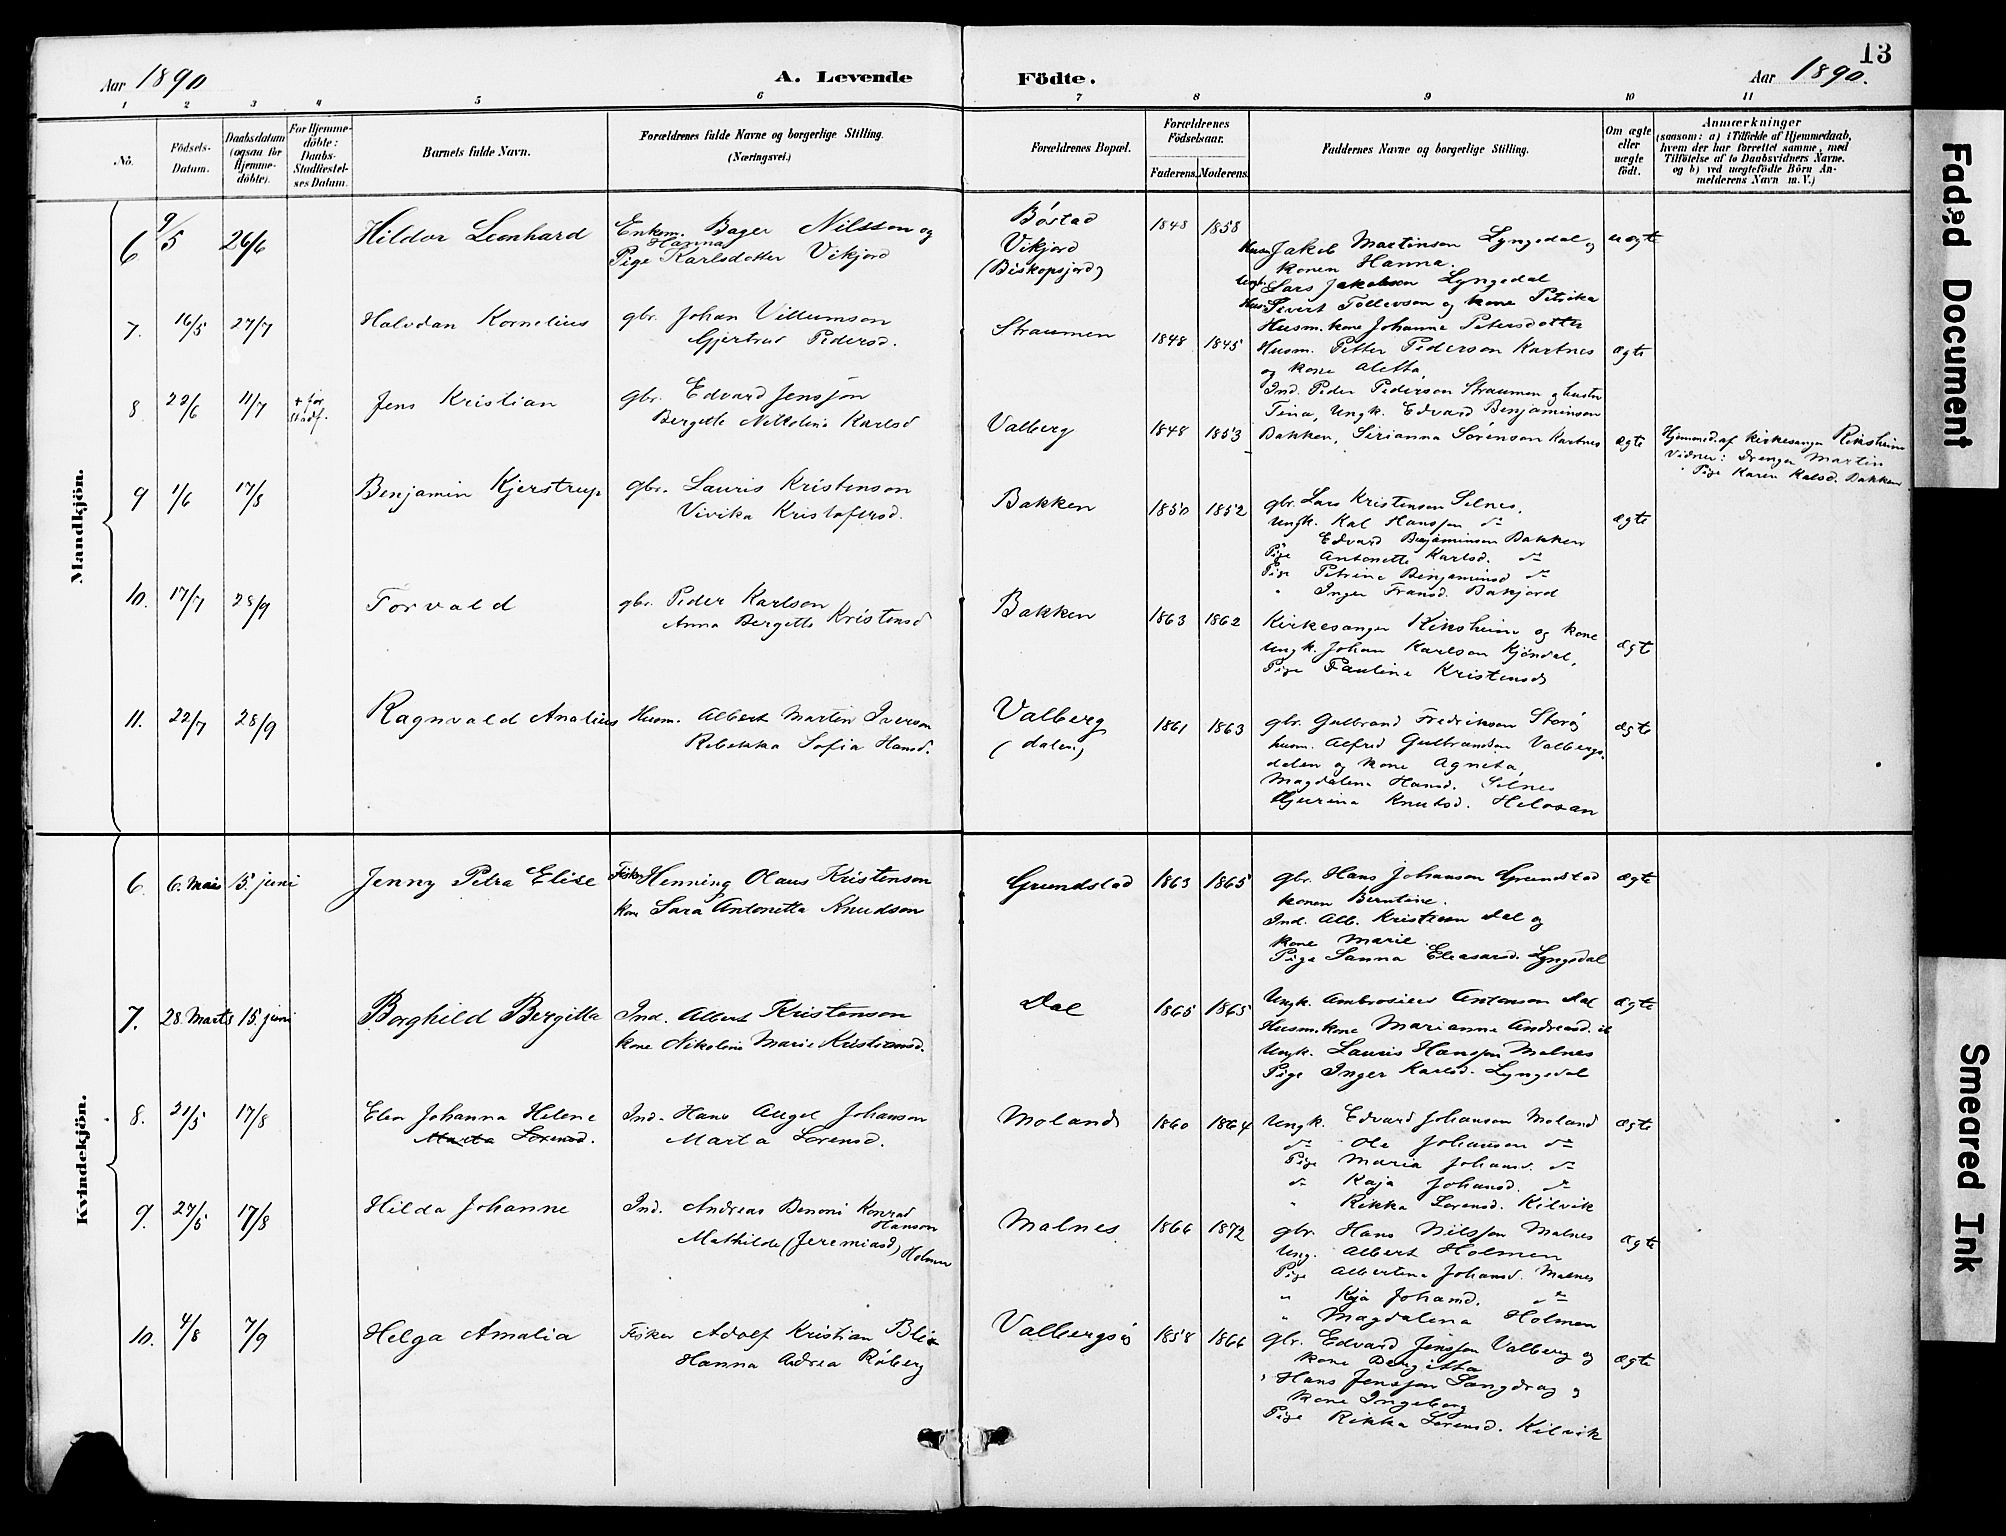 13
Aar 1890
A. Levende
Födte.
Aar 1890.
1 2 3 4 5 6 7 8 9 10 11
No.
Födsels-
Datum.
Daabsdatum
(ogsaa for
Hjemme-
döbte).
For Hjemme-
döbte:
Daabs-
Stadfæstel-
ses Datum.
Barnets fulde Navn.
Forældrenes fulde Navne og borgerlige Stilling.
(Næringsvei.)
Forældrenes Bopæl.
Forældrenes
Födselsaar.
Faderens. Moderens.
Faddernes Navne og borgerlige Stilling.
Om ægte
eller
uægte
födt.
Anmærkninger
(saasom: a) i Tilfælde af Hjemmedaab,
hvem der har forrettet samme, med
Tilföielse af to Daabsvidners Navne.
og b) ved uægtefödte Börn An-
melderens Navn m. V.)
Mandkjön.
6 9/5 26/6 Hildor Leonhard
Enkem. Bager Nilsson og
Hanna
Pige Karlsdotter Vikjord
Böstad
Vikjord
(Biskopsjord)
1848 1858
Husm Jakob Martinson Lyngedal og
konen Hanna.
Ungk. Lars Jakobson Lyngedal
Husm Sivert Tollevson og kone Petrika
uægte
7. 16/5 27/7 Halvdan Kornelius
gbr. Johan Villumson
Gjertrud Pedersd.
Straumen
1848 1845
Husm. kone Johanna Petersdotter
Husm. Petter Pederson Kartnes
og kone Aletta,
Ind. Peder Pederson Straumen og hustru
ægte
8 22/6 11/7 + før
Stadf.
Jens Kristian
gbr. Edvard Jensson
Bergette Nikoline Karlsd
Valberg
1848 1853
Tina, Ungk. Edvard Benjaminson
Bakken, Sirianna Sörenson Kartnes
ægte
Hjemmed. af kirkesanger Riksheim
Vidner: Drengen Martin
Pige Karen Kalsd. Bakken
9 1/6 17/8 Benjamin Kjerstrup
gbr. Lauris Kristenson
Vivika Kristofersd.
Bakken
1850 1852
gbr. Lars Kristensen Selnes,
Ungk. Kal Hansson do
Edvard Benjaminson Bakken
Pige Antonette Karlsd. do
Pige Petrine Benjaminsd do
" Inger Fransd. Bakjord
ægte
10. 17/7 28/9 Torvald
gbr. Peder Karlson
Anna Bergette Kristensd
Bakken
1863 1862
Kirkesanger Riksheim og kone
Ungk. Johan Karlson Kjöndal,
Pige Pauline Kristensd
ægte
11. 22/7 28/9 Ragnvald Analius
Husm. Albert Martin Iverson
Rebekka Sofia Hansd.
Valberg
(dalen)
1861 1863
gbr. Gulbrand Fredrikson Storö
husm. Alfred Gulbrandson Valbergs-
dalen og kone Agneta,
Magdalena Hansd. Selnes
Gjurina Knutsd. Helosan
ægte
Kvindekjön.
6. 6. Mars 15. juni Jenny Petra Elise
Fisker Henning Olaus Kristenson
kone Sara Antonetta Knudson
Grundstad
1863 1865
gbr. Hans Johanson Grundstad
konen Berntine.
Ind. Alb. Kristenson Dal og
kone Marie
Pige Sanna Eleasarsd. Lyngedal
ægte
7. 28. Marts 15. juni Borghild Bergitta
Ind. Albert Kristenson
kone Nikoline Marie Kristiansd.
Dal
1865 1865
Ungk. Ambrosius Antonson Dal
Husm. kone Marianna Andreasd.
Ungk. Lauris Hansson Malnes
Pige Inger Karlsd. Lyngedal
ægte
8. 21/5 17/8 Elen Johanna Helene
Marta Sorensd.
Ind. Hans Angel Johanson
Marta Sorensd.
Moland
1860 1864
Ungk. Edvard Johanson Moland
do Ole Johanson do
Pige Maria Johansd. do
do Kaja Johansd. do
" Rikka Sorensd. Kilvik
ægte
9. 27/5 17/8 Hilda Johanne
Ind. Andreas Benoni Konrad
Hanson
Mathilde (Jeremiasd) Holmen
Malnes
1866 1872
gbr. Hans Nilsson Malnes
Ung. Albert Holmen
Pige Albertina Johansd. Malnes
" Kaja Johansd. do
" Magdalena Holmen
ægte
10. 4/8 7/9 Helga Amalia
Fisker Adolf Kristian Blix
Hanna Andrea Röberg
Valbergsö
1858 1866
gbr. Edvard Jensson Valberg og
kone Bergitta
" Hans Jensson Sangdrag og
kone Ingeborg
Pige Rikka Sorensd. Kilvik
ægte
Faded Document
Smeared Ink